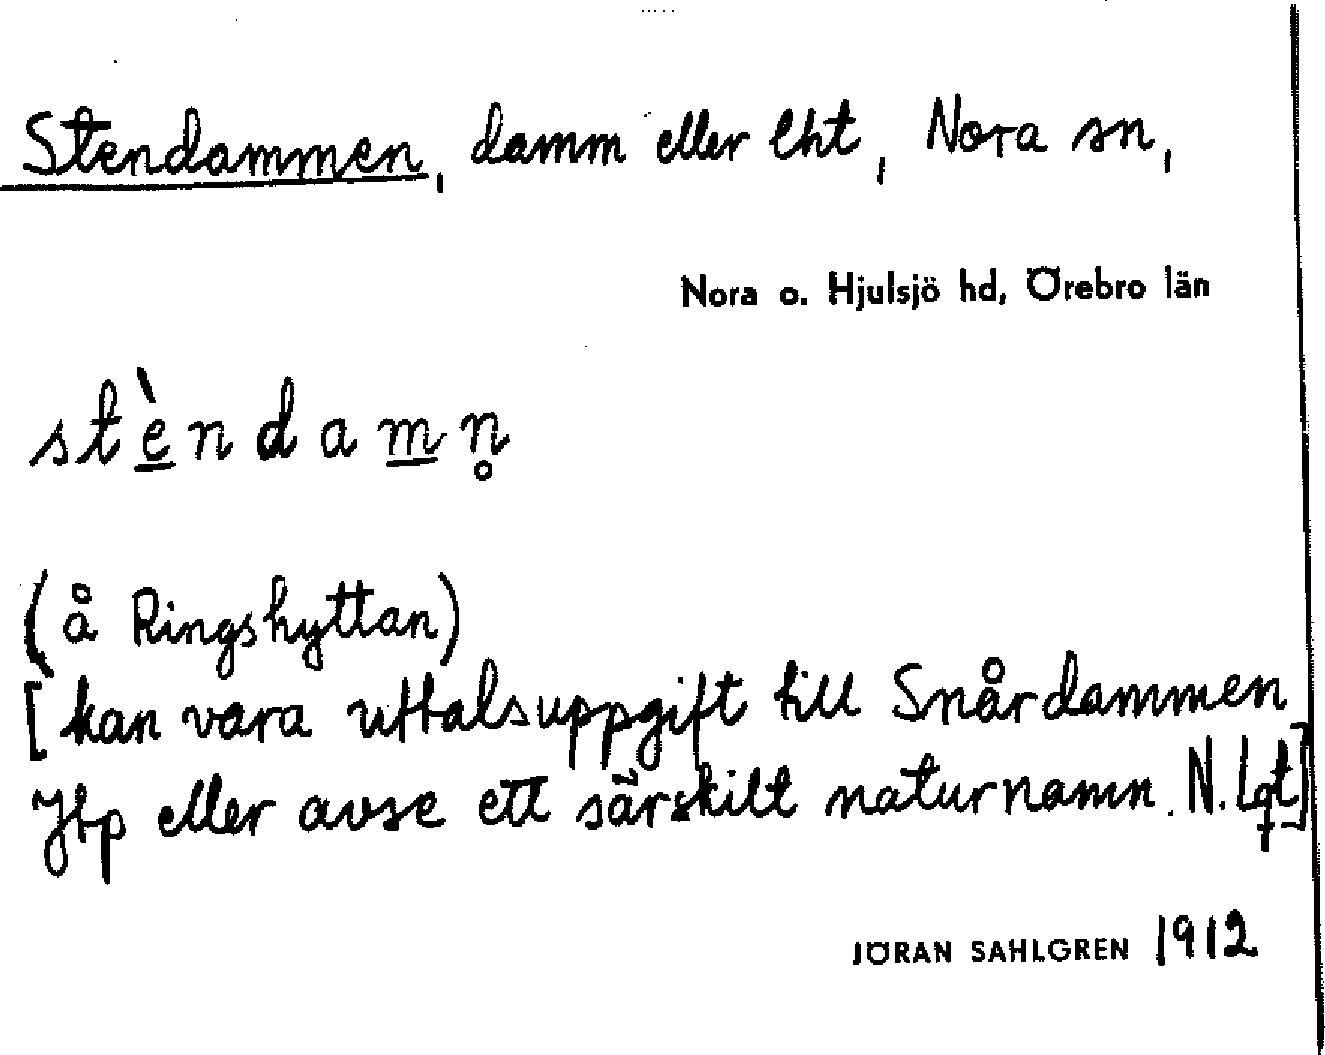 Stendammen, damm eller lht, Nora sn,
Nora o. Hjulsjö hd, Örebro län
stè̲ndam̲n̥
(å Ringshyttan)
[kan vara uttalsuppgift till Snårdammen
Jbp eller avse ett särskilt naturnamn. N. Lqt]
JÖRAN SAHLGREN 1912